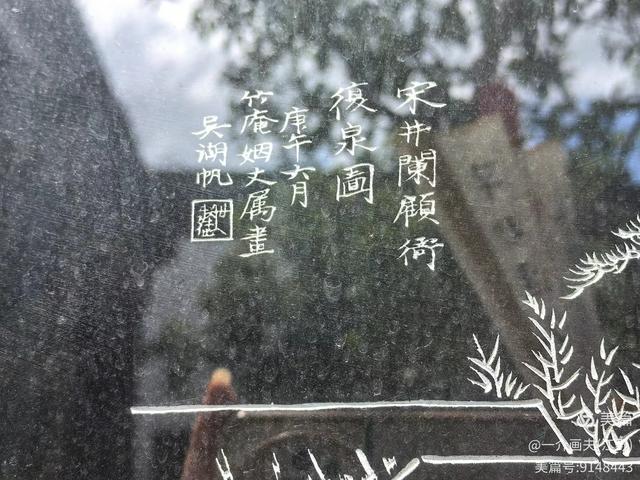 宋井闌顧衙
復泉圖
庚午六月
竹庵姻丈属畫
吳湖帆
美篇
@一介画夫
美篇号:9148443